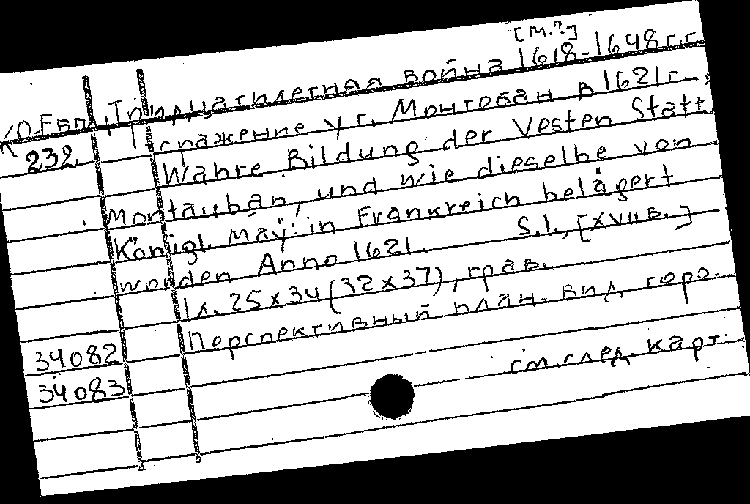 [м.?]
Тридцатилетняя война 1618-1648 г.г.
К0 Евп
232
Сражение у г. Монтобан в 1621 г.
Wahre Bildung der Vesten Statt
Montauban, und wie dieselbe von
Königl. Maÿ: in Frankreich belägert
worden Anno 1621. S.l., [XVIIв.]
1 л. 25x34 (32x37), грав.
Перспективный план. вид горо-
34082
34083
см. след. карт.